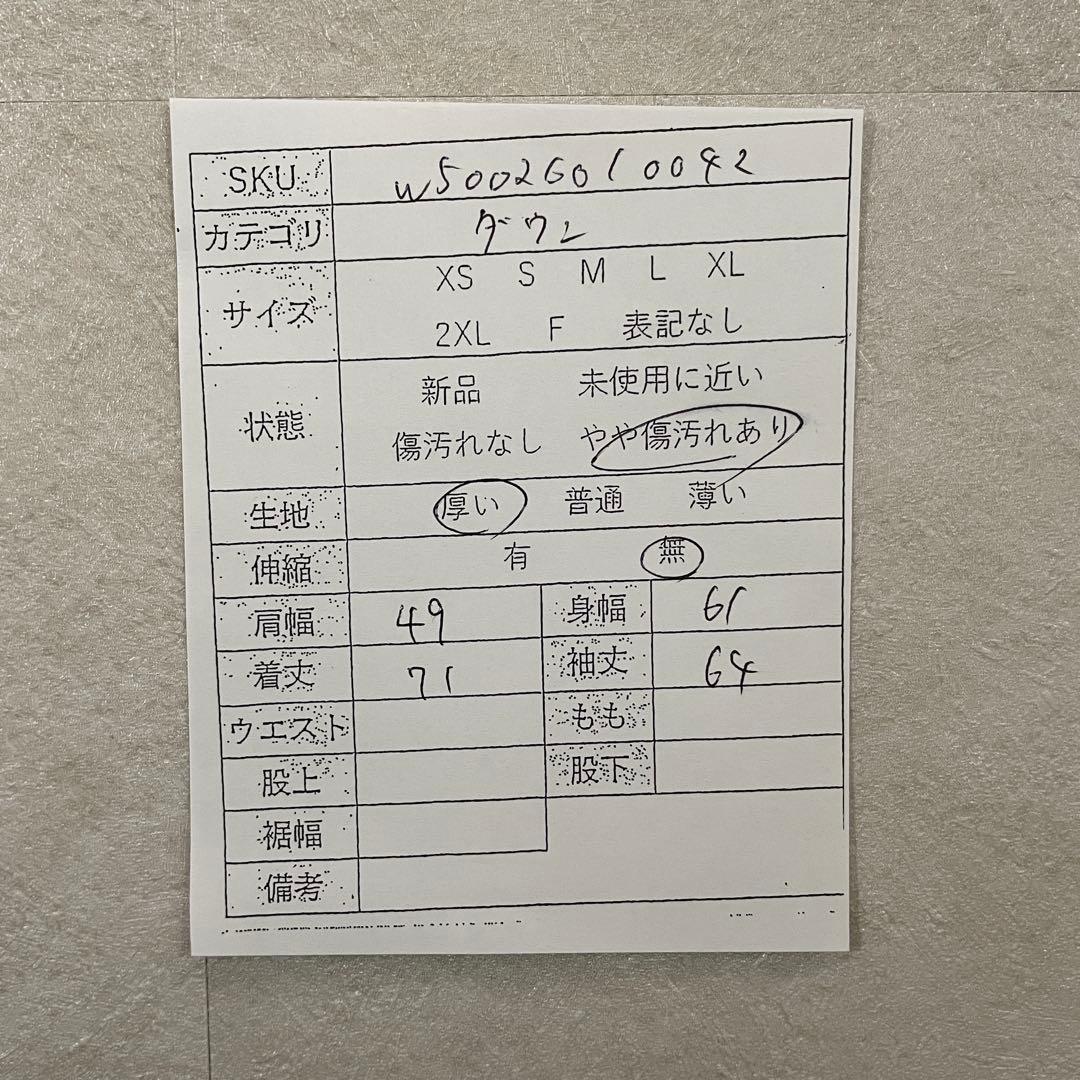 SKU w50026010042
カテゴリ ダウン
サイズ XS S M L XL
2XL F 表記なし
状態 新品 未使用に近い
傷汚れなし やや傷汚れあり
生地 厚い 普通 薄い
伸縮 有 無
肩幅 49 身幅 61
着丈 71 袖丈 64
ウエスト もも
股上 股下
裾幅
備考